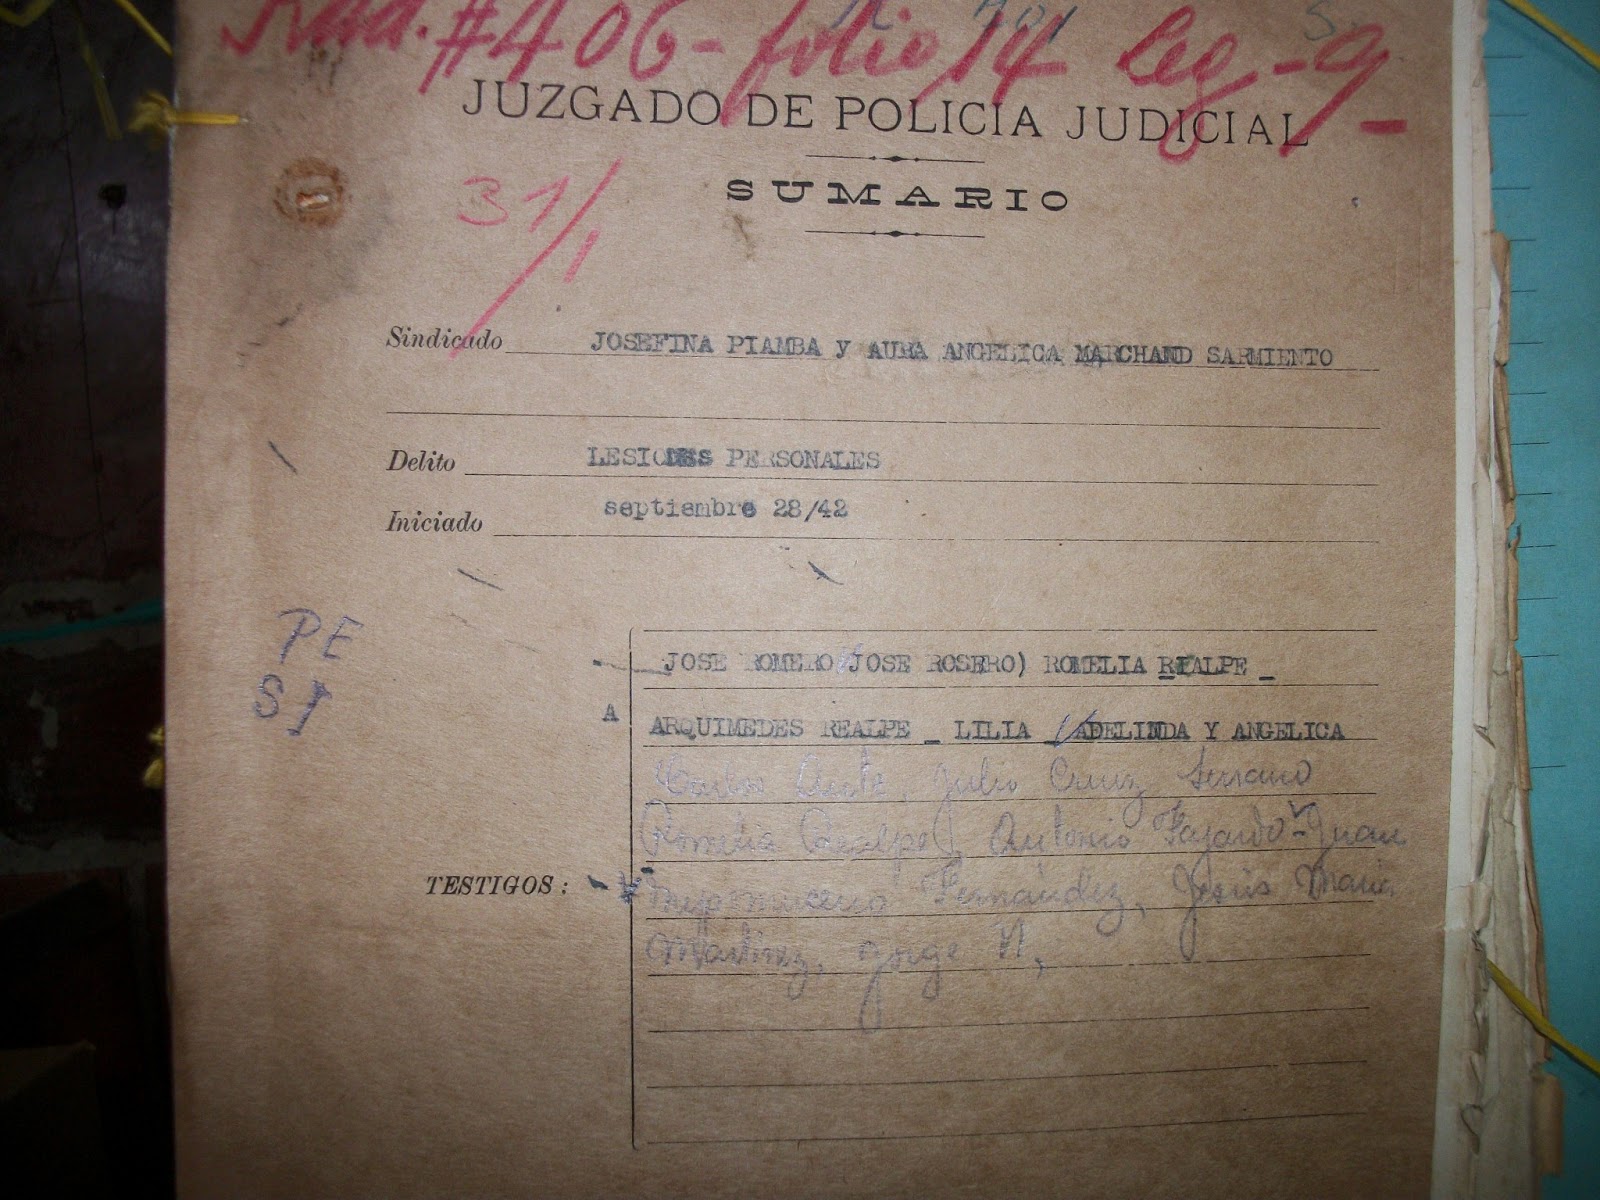 Rad. #406 - folio 14 leg - 9 -
JUZGADO DE POLICIA JUDICIAL
31/1
SUMARIO
Sindicado JOSEFINA PIAMBA y AURA ANGELICA MARCHAND SARMIENTO
Delito LESIONES PERSONALES
Iniciado septiembre 28/42
PE
SI
JOSE ROMERO (JOSE ROSERO) ROMELIA REALPE _
A ARQUIMEDES REALPE _ LILIA _ ADELINDA Y ANGELICA
Carlos Julio Cruz Serrano
Romelia Realpe, Antonio Fajardo - Juan
TESTIGOS: Nepomuceno Fernández, Jesús Maria
Martinez, Jorge N,